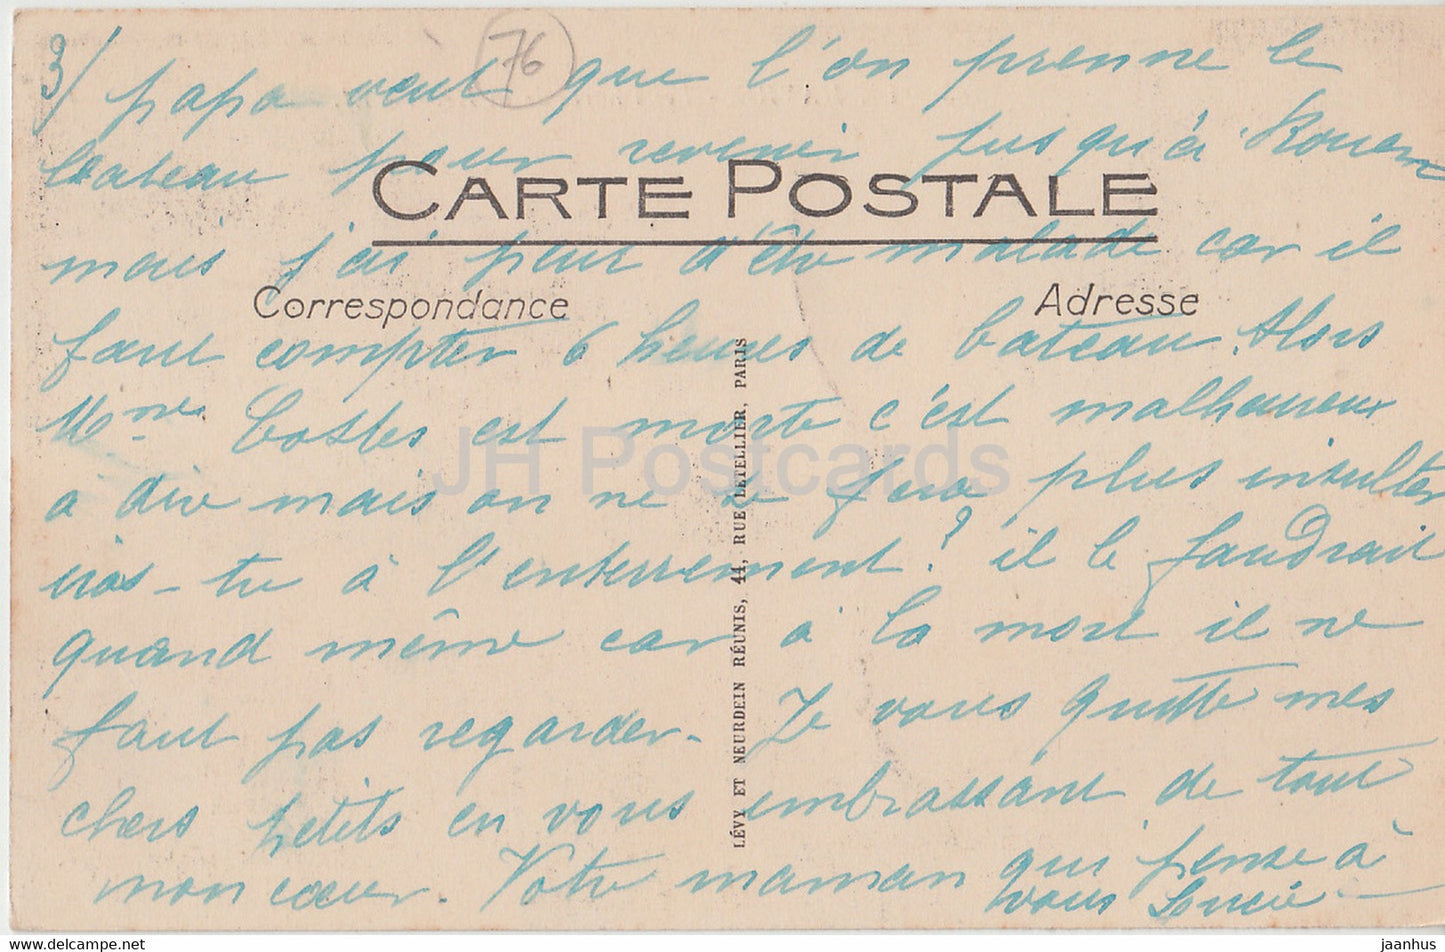 3/
76
papa veut que l'on prenne le
bateau pour revenir jusqu'à Rouen
CARTE POSTALE
mais j'ai peur d'être malade car il
Correspondance
Adresse
faut compter 6 heures de bateau. Alors
Mme Costes est morte c'est malheureux
a dire mais on ne se fera plus insulter
iras-tu à l'enterrement? il le faudrait
quand même car à la mort il ne
faut pas regarder. Je vous quitte mes
chers petits en vous embrassant de tout
mon cœur. Votre maman qui pense à
vous Lucie
LÉVY ET NEURDEIN RÉUNIS, 44, RUE LETELLIER, PARIS
JH Postcards
jaanhus
eu.hippostcard.com